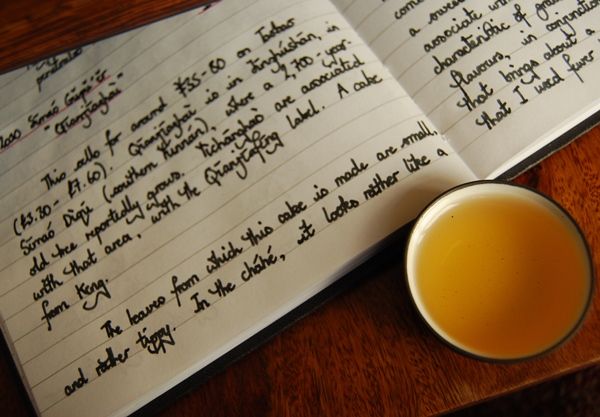 2000 Simáo Gǔpǔ'ěr
"Qianjiazhai"
This sells for around ¥55-80 on Taobao
(£5.20 - £7.60). Qianjiazhai is in in
Simáo Dìqū (southern Yúnnán), where a 2,700-year-
old tree reportedly grows. are associated
with that area, with the Qianjiafeng label. A cake
from Keng.
The leaves from which this cake is made are small,
and rather tippy. In the cháhé, it looks rather like a
a
associate with
characteristic of
flavours, in conjunction
that brings about a
that I used